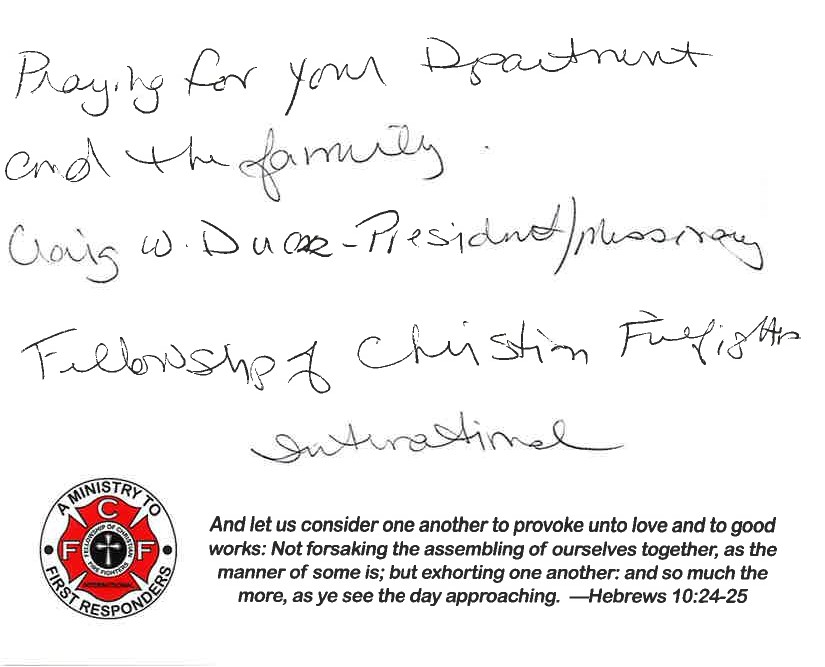 Praying for your Department
and the family.
Craig W. Duck - President/missionary
Fellowship of Christian Firefighters
International
A MINISTRY TO
C
F F
FELLOWSHIP OF CHRISTIAN
FIRE FIGHTERS
INTERNATIONAL
FIRST RESPONDERS
And let us consider one another to provoke unto love and to good
works: Not forsaking the assembling of ourselves together, as the
manner of some is; but exhorting one another: and so much the
more, as ye see the day approaching. —Hebrews 10:24-25